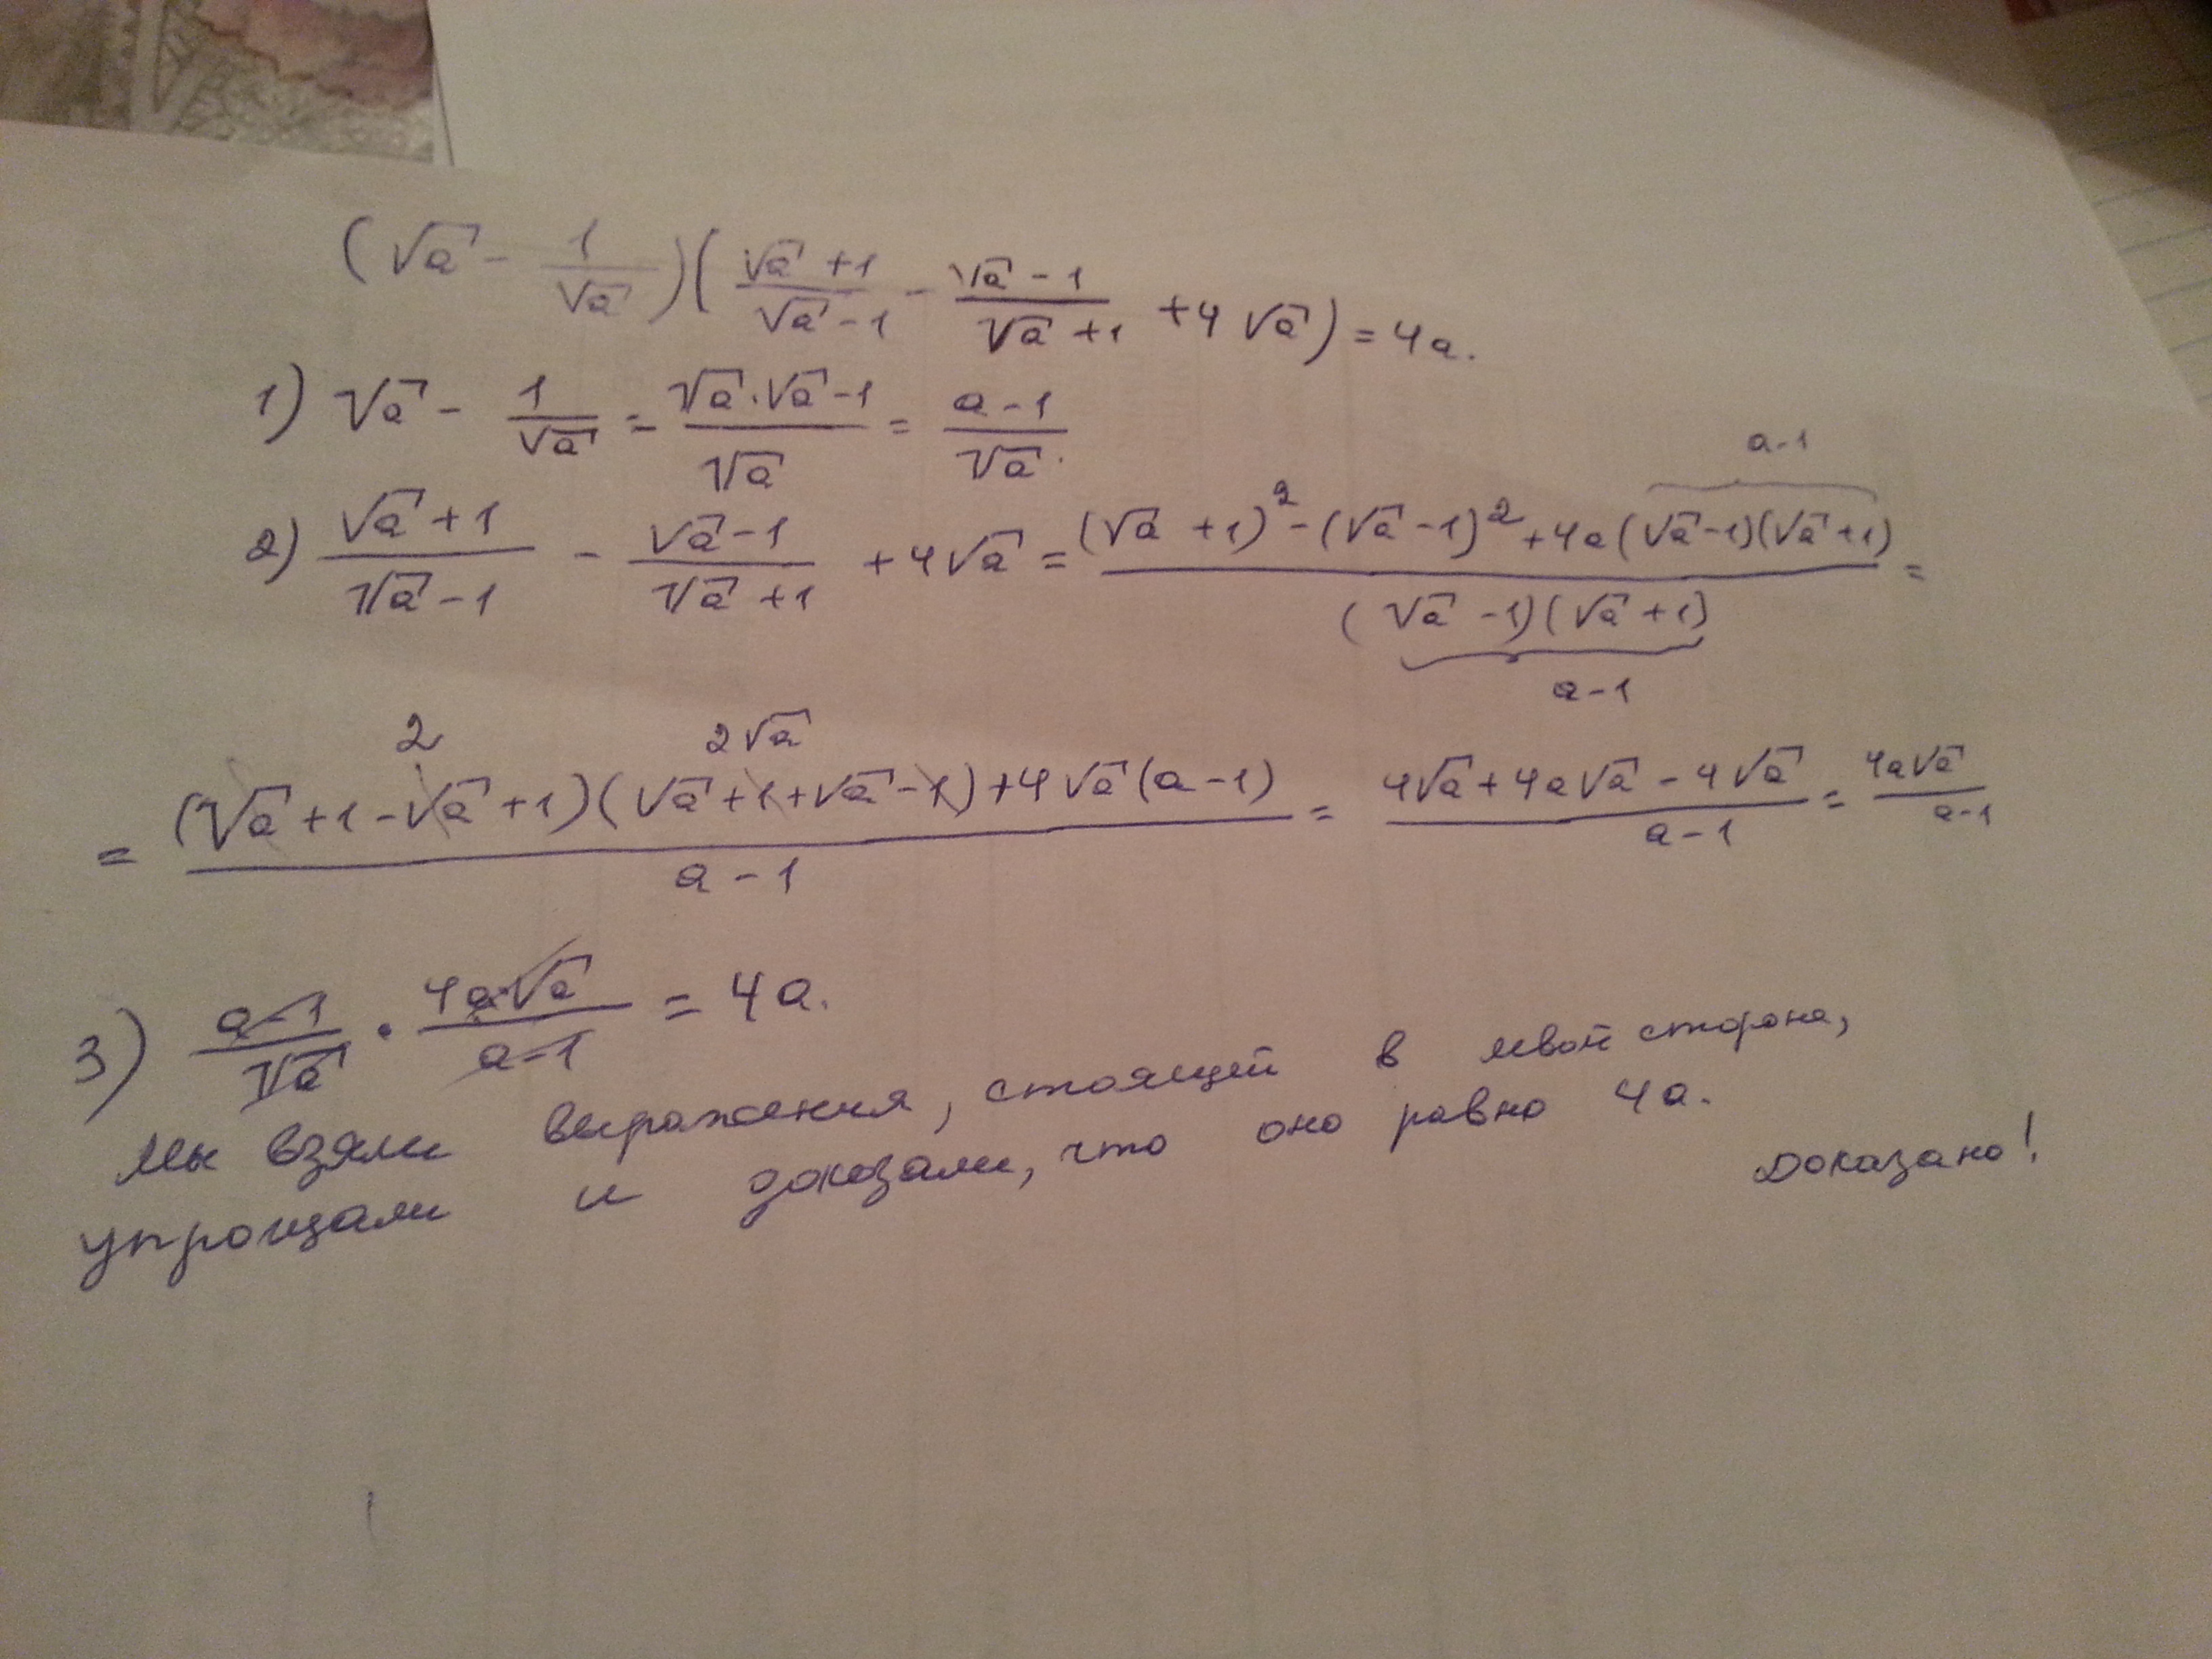 (√a - 1/√a)((√a+1)/(√a-1) - (√a-1)/(√a+1) + 4√a) = 4a.
1) √a - 1/√a = (√a·√a-1)/√a = (a-1)/√a.
a-1
2) (√a+1)/(√a-1) - (√a-1)/(√a+1) + 4√a = ((√a+1)² - (√a-1)² + 4a(√a-1)(√a+1))/((√a-1)(√a+1)) =
a-1
2 2√a
= ((√a+1-√a+1)(√a+1+√a-1)+4√a(a-1))/(a-1) = (4√a+4a√a-4√a)/(a-1) = 4a√a/(a-1)
3) (a-1)/√a · 4a√a/(a-1) = 4a.
Мы взяли выражения, стоящей в левой стороне,
упрощали и доказали, что оно равно 4a.
Доказано!